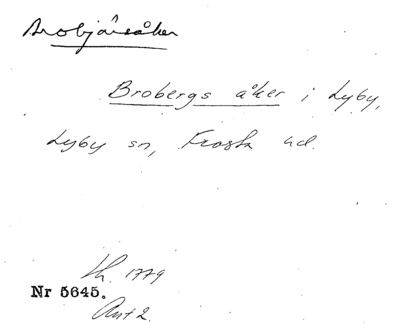 Brobjårsåker
Brobergs åker i Lyby,
Lyby sn, Frosta hd.
Lh. 1779
Nr 5645.
Ant 2.